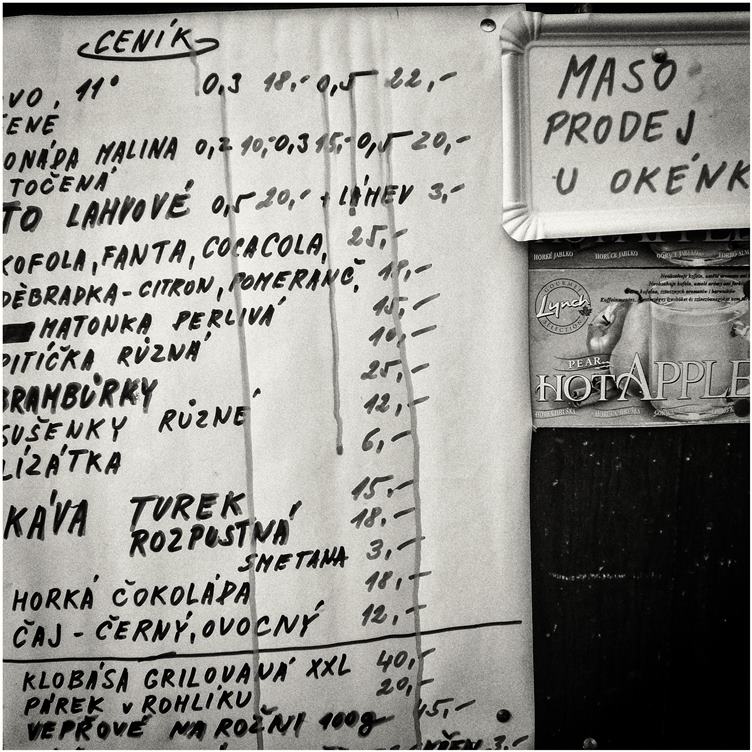 CENÍK
VO, 11° 0,3 18,- 0,5 22,-
ENE
ONÁDA MALINA 0,2 10,- 0,3 15,- 0,5 20,-
TOČENÁ
TO LAHVOVÉ 0,5 20,- + LÁHEV 3,-
KOFOLA, FANTA, COCACOLA, 25,-
DĚBRADKA - CITRON, POMERANČ,
MATONKA PERLIVÁ 15,-
PITÍČKA RŮZNÁ 10,-
BRAMBŮRKY 25,-
SUŠENKY RŮZNÉ 12,-
LÍZÁTKA 6,-
KÁVA TUREK 15,-
ROZPUSTNÁ 18,-
SMETANA 3,-
HORKÁ ČOKOLÁDA 18,-
ČAJ - ČERNÝ, OVOCNÝ 12,-
KLOBÁSA GRILOVANÁ XXL 40,-
PÁREK v ROHLÍKU 20,-
VEPŘOVÉ NA ROŽNI 100g 45,-
KŘEN 3,-
MASO
PRODEJ
U OKÉNK
HORKÉ JABLKO HORÚCE JABLKO
GOURMET
Lynch
SELECTION
PEAR
HOT APPLE
HORKÁ HRUŠKA HORÚCA HRUŠKA